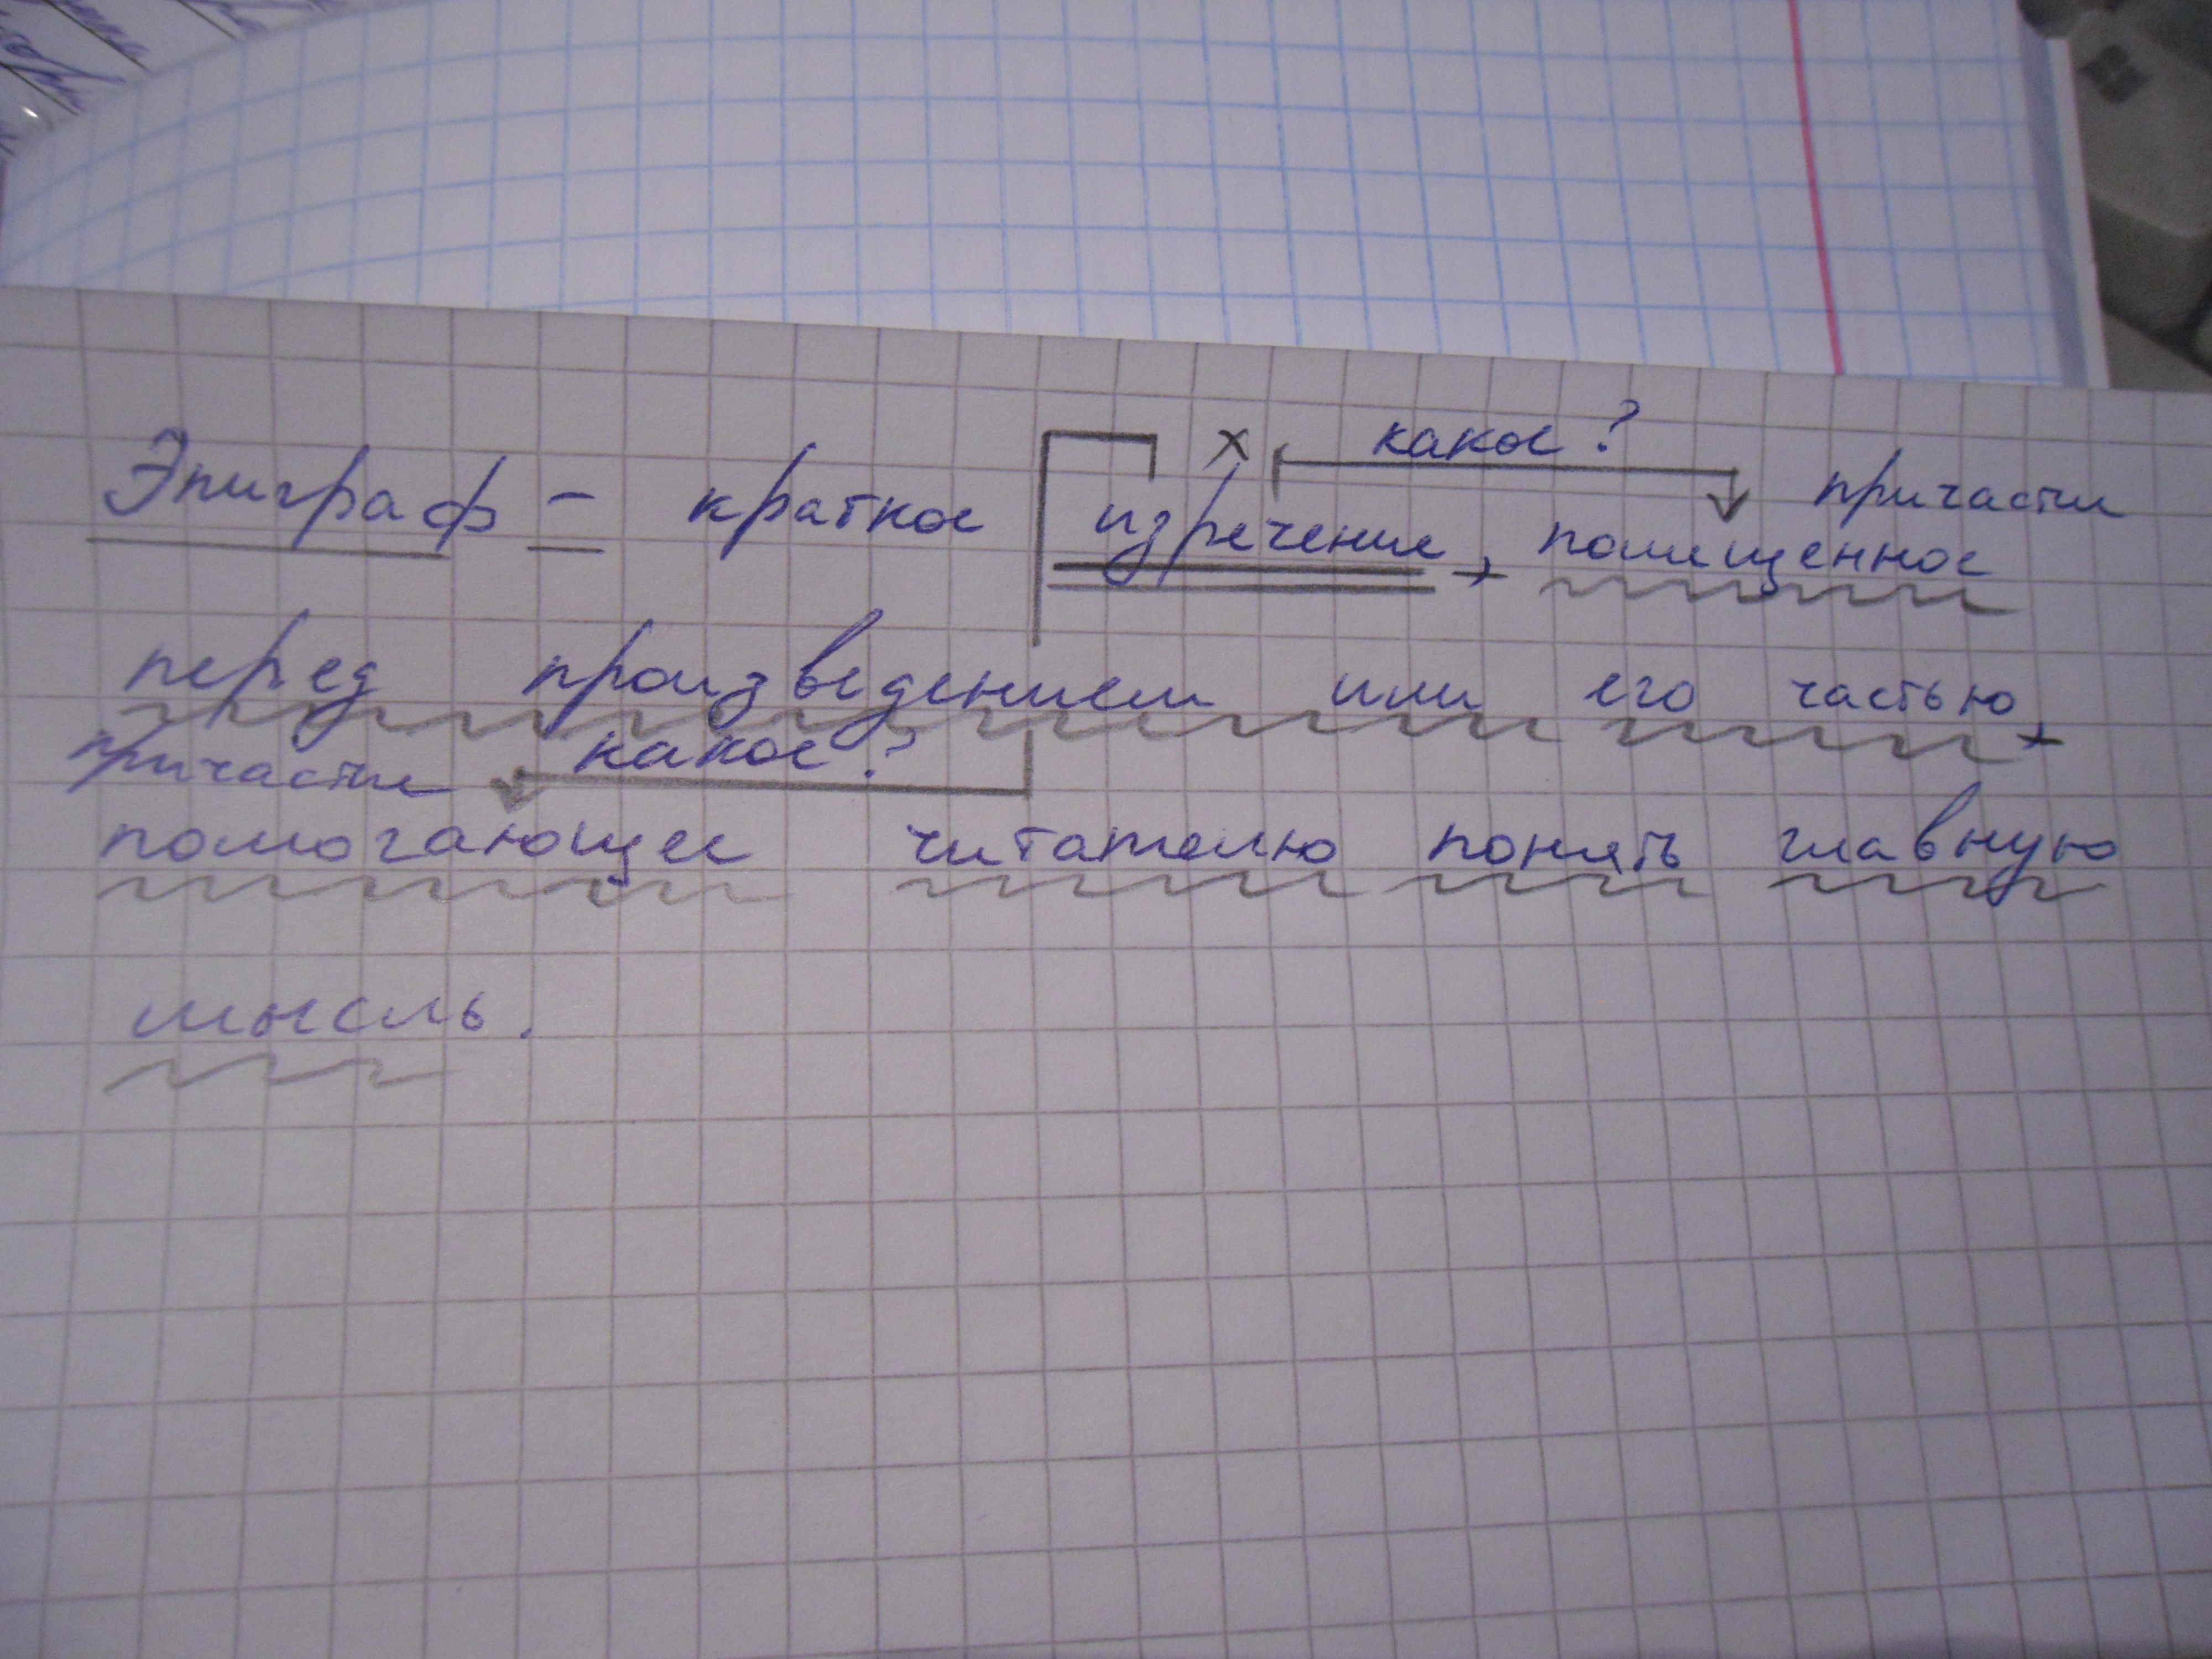 какое?
Эпиграф – краткое изречение, помещенное
причасти
перед произведением или его частью,
причастие какое?
помогающее читателю понять главную
мысль.